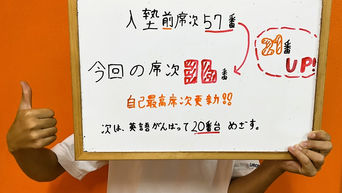 入塾前席次57番
21番
UP!
今回の席次36番
自己最高席次更新!!
次は、英語がんばって20番台めざす。